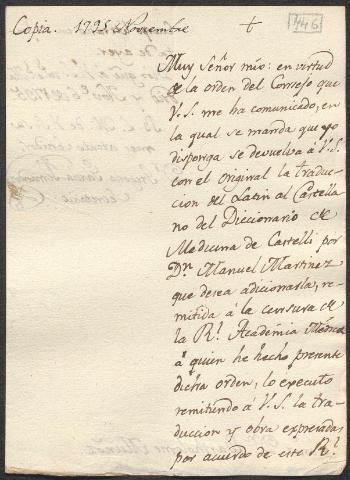 Copia. 1795. Noviembre
446
Muy Señor mio: en virtud
de la orden del Consejo que
V. S. me ha comunicado, en
la qual se manda que yo
disponga se devuelva á V. S.
con el Original la traduc-
cion del Latin al Castella
no del Diccionario de
Medicina de Castelli por
Dn. Manuel Martinez
que desea adicionarla, re-
mitida á la censura de
la Rl. Academia Médica
á quien he hecho presente
dicha orden, lo executo
remitiendo á V. S. la tra-
duccion y obra expresadas
por acuerdo de este Rl.